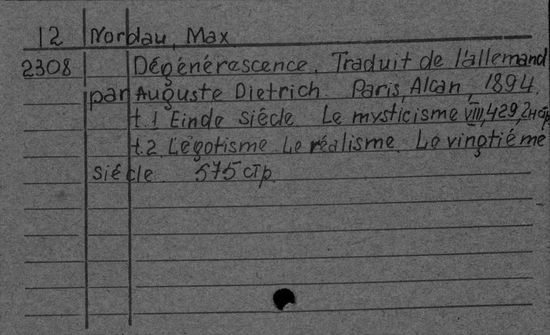 12 Nordau, Max
2308 Dégénérescence. Traduit de l'allemand
par Auguste Dietrich. Paris, Alcan, 1894.
t.1 Einde siécle Le mysticisme VIII, 429, 2 н стр
t.2. L'égotisme Le réalisme. Le vingtiéme
siécle 575 стр.